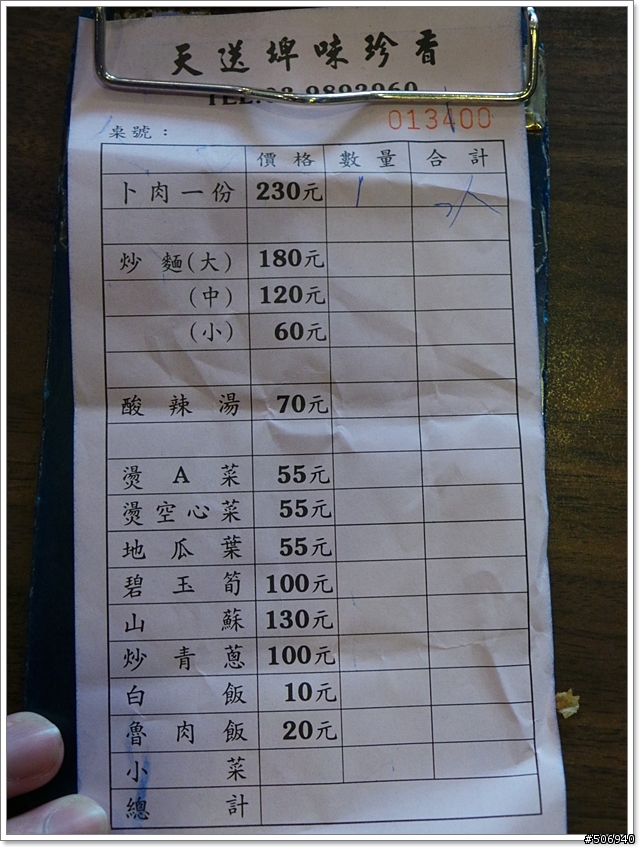 天送埤味珍香
TEL:03-9892960
013400
桌號：
價格 數量 合計
卜肉一份 230元 1
炒麵(大) 180元
(中) 120元
(小) 60元
酸辣湯 70元
燙A菜 55元
燙空心菜 55元
地瓜葉 55元
碧玉筍 100元
山蘇 130元
炒青蔥 100元
白飯 10元
魯肉飯 20元
小菜
總計
#506940